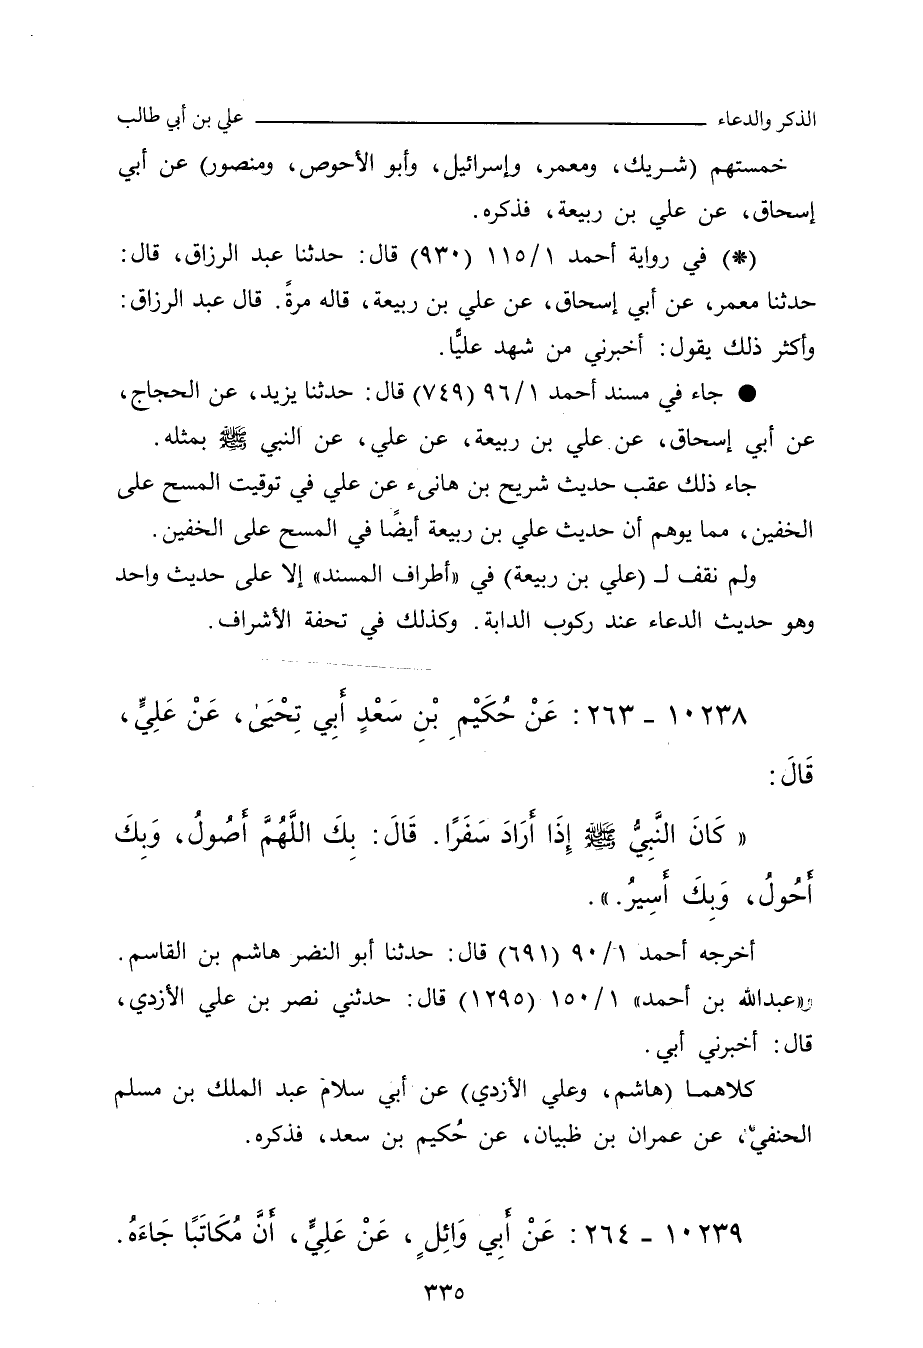 الذكر والدعاء ــــــــــــــــ علي بن أبي طالب
خمستهم (شريك، ومعمر، وإسرائيل، وأبو الأحوص، ومنصور) عن أبي
إسحاق، عن علي بن ربيعة، فذكره.
(*) في رواية أحمد ١/١١٥ (٩٣٠) قال: حدثنا عبد الرزاق، قال:
حدثنا معمر، عن أبي إسحاق، عن علي بن ربيعة، قاله مرةً. قال عبد الرزاق:
وأكثر ذلك يقول: أخبرني من شهد عليًّا.
● جاء في مسند أحمد ١/٩٦ (٧٤٩) قال: حدثنا يزيد، عن الحجاج،
عن أبي إسحاق، عن علي بن ربيعة، عن علي، عن النبي ﷺ بمثله.
جاء ذلك عقب حديث شريح بن هانىء عن علي في توقيت المسح على
الخفين، مما يوهم أن حديث علي بن ربيعة أيضًا في المسح على الخفين.
ولم نقف لـ (علي بن ربيعة) في «أطراف المسند» إلا على حديث واحد
وهو حديث الدعاء عند ركوب الدابة. وكذلك في تحفة الأشراف.
١٠٢٣٨ - ٢٦٣: عَنْ حُكَيْمِ بْنِ سَعْدٍ أَبِي تِحْيَىٰ، عَنْ عَلِيٍّ،
قَالَ:
« كَانَ النَّبِيُّ ﷺ إِذَا أَرَادَ سَفَرًا. قَالَ: بِكَ اللَّهُمَّ أَصُولُ، وَبِكَ
أَحُولُ، وَبِكَ أَسِيرُ.».
أخرجه أحمد ١/٩٠ (٦٩١) قال: حدثنا أبو النضر هاشم بن القاسم.
و«عبدالله بن أحمد» ١/١٥٠ (١٢٩٥) قال: حدثني نصر بن علي الأزدي،
قال: أخبرني أبي.
كلاهما (هاشم، وعلي الأزدي) عن أبي سلام عبد الملك بن مسلم
الحنفي، عن عمران بن ظبيان، عن حُكيم بن سعد، فذكره.
١٠٢٣٩ - ٢٦٤: عَنْ أَبِي وَائِلٍ، عَنْ عَلِيٍّ، أَنَّ مُكَاتَبًا جَاءَهُ.
٣٣٥